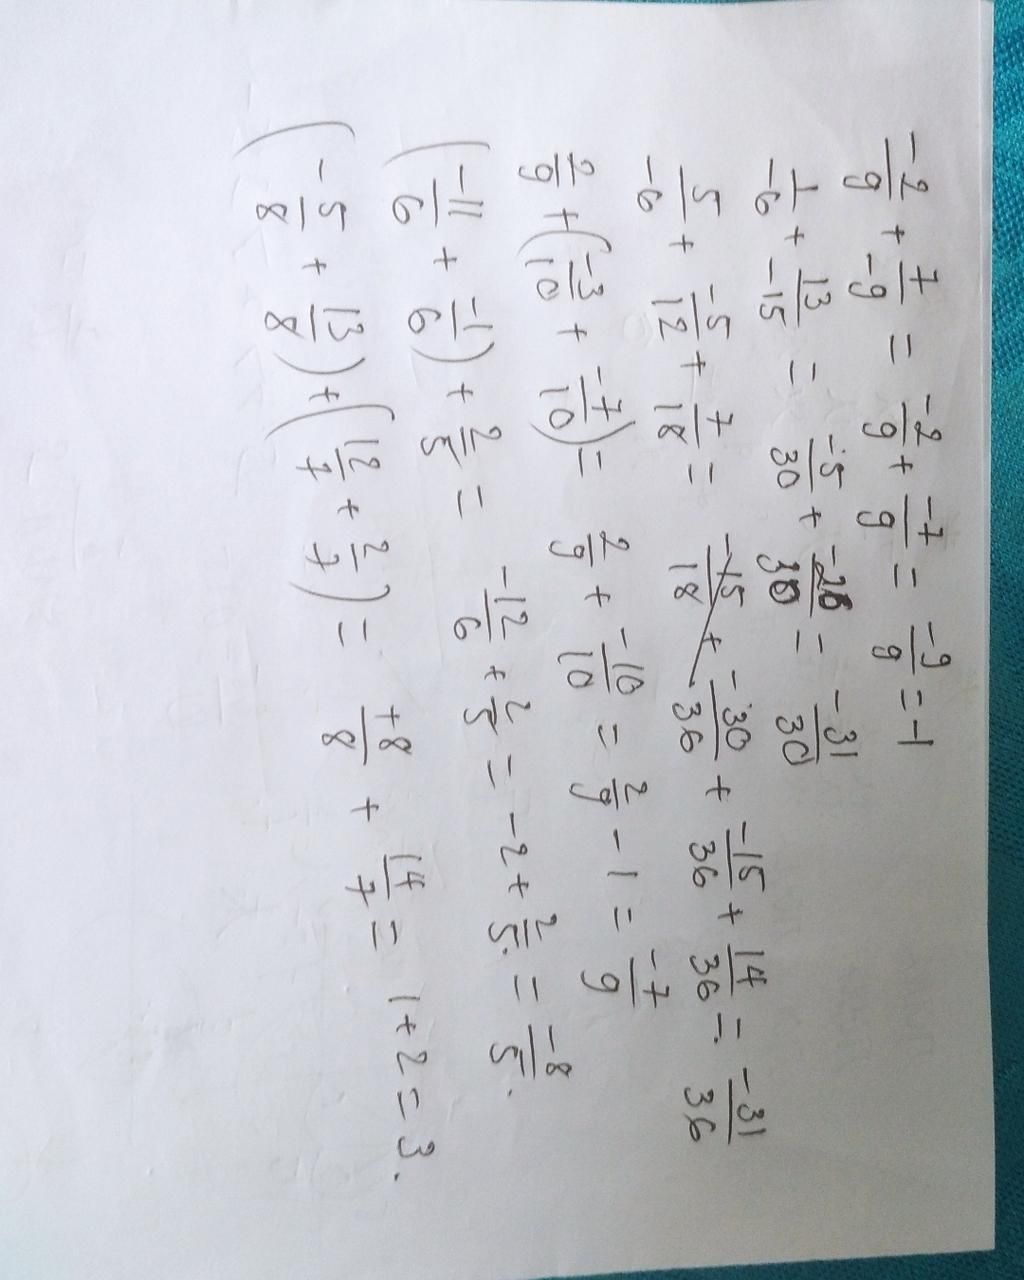 -2/9 + 7/-9 = -2/9 + -7/9 = -9/9 = -1
1/-6 + 13/-15 = -5/30 + -26/30 = -31/30
5/-6 + -5/12 + 7/18 = -30/36 + -15/36 + 14/36 = -31/36
2/9 + (-3/10 + -7/10) = 2/9 + -10/10 = 2/9 - 1 = -7/9
(-11/6 + -1/6) + 2/5 = -12/6 + 2/5 = -2 + 2/5 = -8/5.
(-5/8 + 13/8) + (12/7 + 2/7) = +8/8 + 14/7 = 1 + 2 = 3.